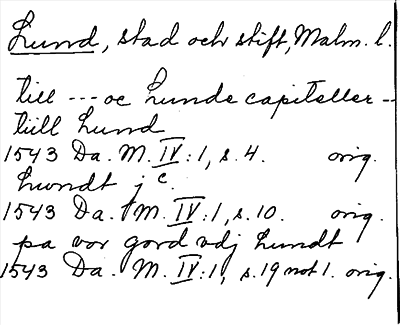 Lund, stad och stift, Malm. l.
till --- oc Lunde capiteller --
tiill Lund
1543 Da. M. IV:1, s. 4. orig.
Lwndt j c.
1543 Da. M. IV:1, s. 10. orig.
pa vor gord vdj Lundt
1543 Da. M. IV:1, s. 19 not 1. orig.